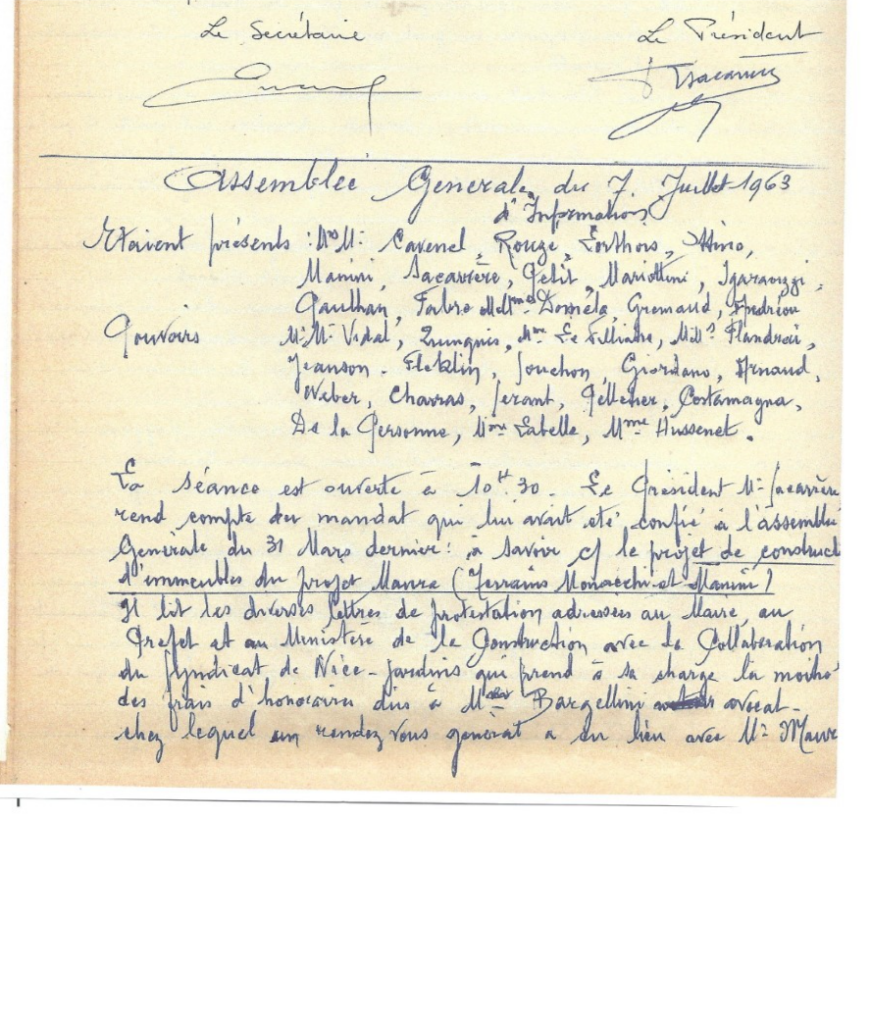 Le Secrétaire Le Président
Assemblée Generale du 7 Juillet 1963
d'Information
Etaient présents : MM: Cavenel, Rouze, Lorthois, Attino,
Manini, Lacarrère, Petit, Mariottini,
Gaulhan, Fabre Mme Doméla, Gremaud, Andréou
Pouvoirs M. M. Vidal, Mme Le Filliatre, Flandrai,
Jeanson - Flecklin, Souchon, Giordano, Arnaud,
Weber, Chavras, Serant, Pelletier, Costamagna,
De la Personne, Mme Labelle, Mme Hussenet.
La séance est ouverte à 10H30. Le Président M. Lacarrère
rend compte du mandat qui lui avait été confié à l'assemblée
Générale du 31 Mars dernier: à savoir c/ le projet de construct
d'immeubles du projet Maure (Terrains Monacchi et Manini)
Il lit les diverses lettres de protestation adressees au Maire, au
Prefet et au Ministère de la Construction avec la Collaboration
du Syndicat de Nice-Jardins qui prend à sa charge la moitié
des frais d'honoraires dûs à Me Bargellini avocat-
chez lequel un rendez vous général a eu lieu avec M. Maure